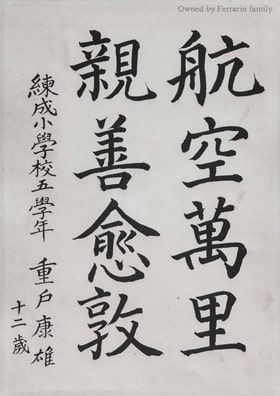 Owned by Ferrarin family
航空萬里
親善愈敦
練成小學校五學年 重戶康雄
十二歲